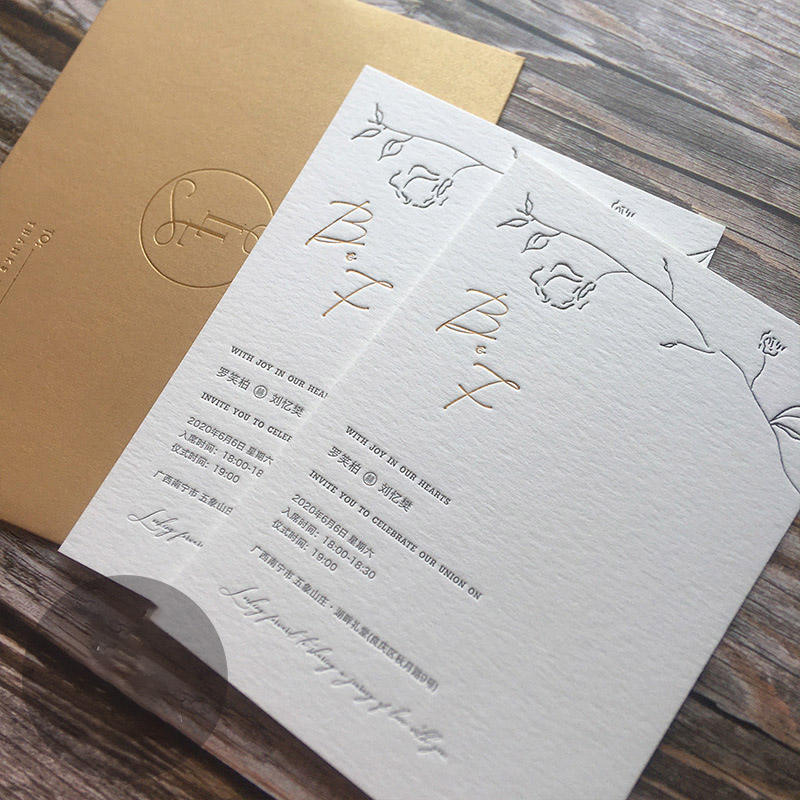 TO:
THANKS
B
&
F
WITH JOY IN OUR HEA
罗笑柏 囍 刘忆樊
INVITE YOU TO CELEB
2020年6月6日 星期六
入席时间：18:00-18
仪式时间：19:00
广西南宁市 五象山庄
B
&
F
WITH JOY IN OUR HEARTS
罗笑柏 囍 刘忆樊
INVITE YOU TO CELEBRATE OUR UNION ON
2020年6月6日 星期六
入席时间：18:00-18:30
仪式时间：19:00
广西南宁市 五象山庄·湖畔礼堂(良庆区秋月路9号)
forward to sharing a journey of love with you